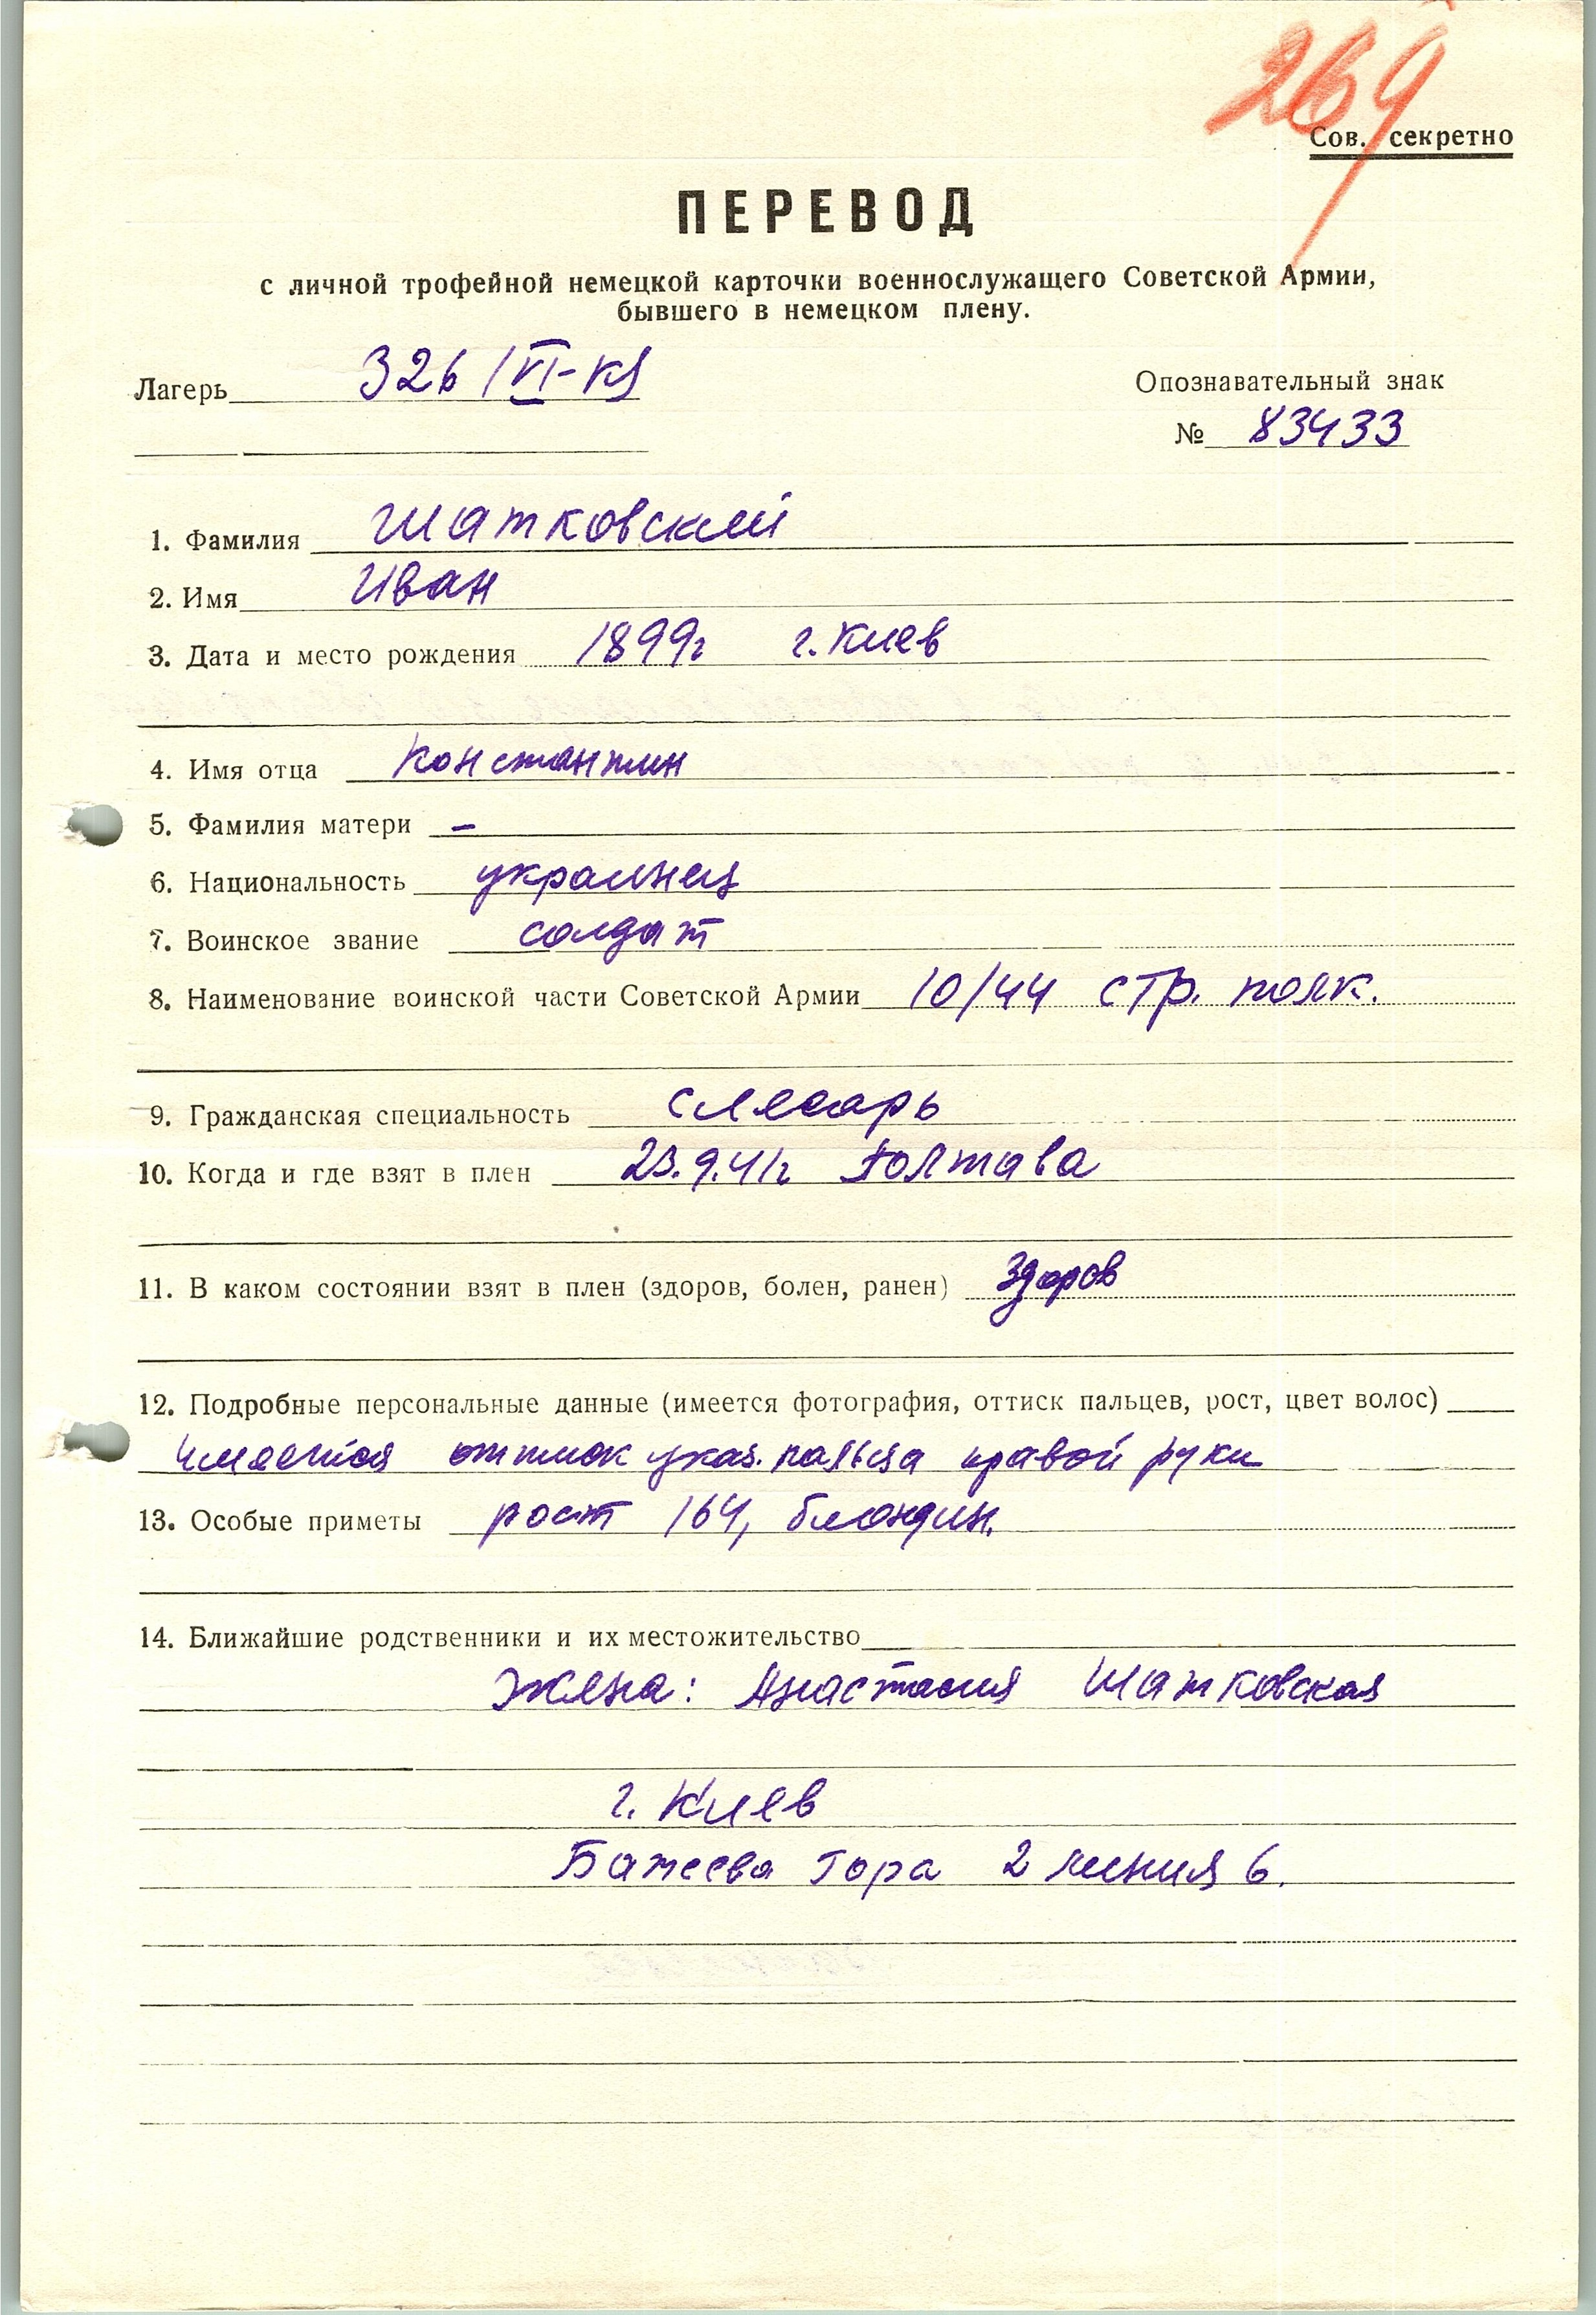 269
Сов. секретно
ПЕРЕВОД
с личной трофейной немецкой карточки военнослужащего Советской Армии,
бывшего в немецком плену.
Лагерь 326/VI-К
Опознавательный знак
№ 83433
1. Фамилия Шатковский
2. Имя Иван
3. Дата и место рождения 1899г г. Киев
4. Имя отца Константин
5. Фамилия матери –
6. Национальность украинец
7. Воинское звание солдат
8. Наименование воинской части Советской Армии 10/44 стр. полк.
9. Гражданская специальность слесарь
10. Когда и где взят в плен 23.9.41г Полтава
11. В каком состоянии взят в плен (здоров, болен, ранен) здоров
12. Подробные персональные данные (имеется фотография, оттиск пальцев, рост, цвет волос)
имеется оттиск указ. пальца правой руки
13. Особые приметы рост 164, блондин.
14. Ближайшие родственники и их местожительство
Жена: Анастасия Шатковская
г. Киев
Гора 2 линия 6.